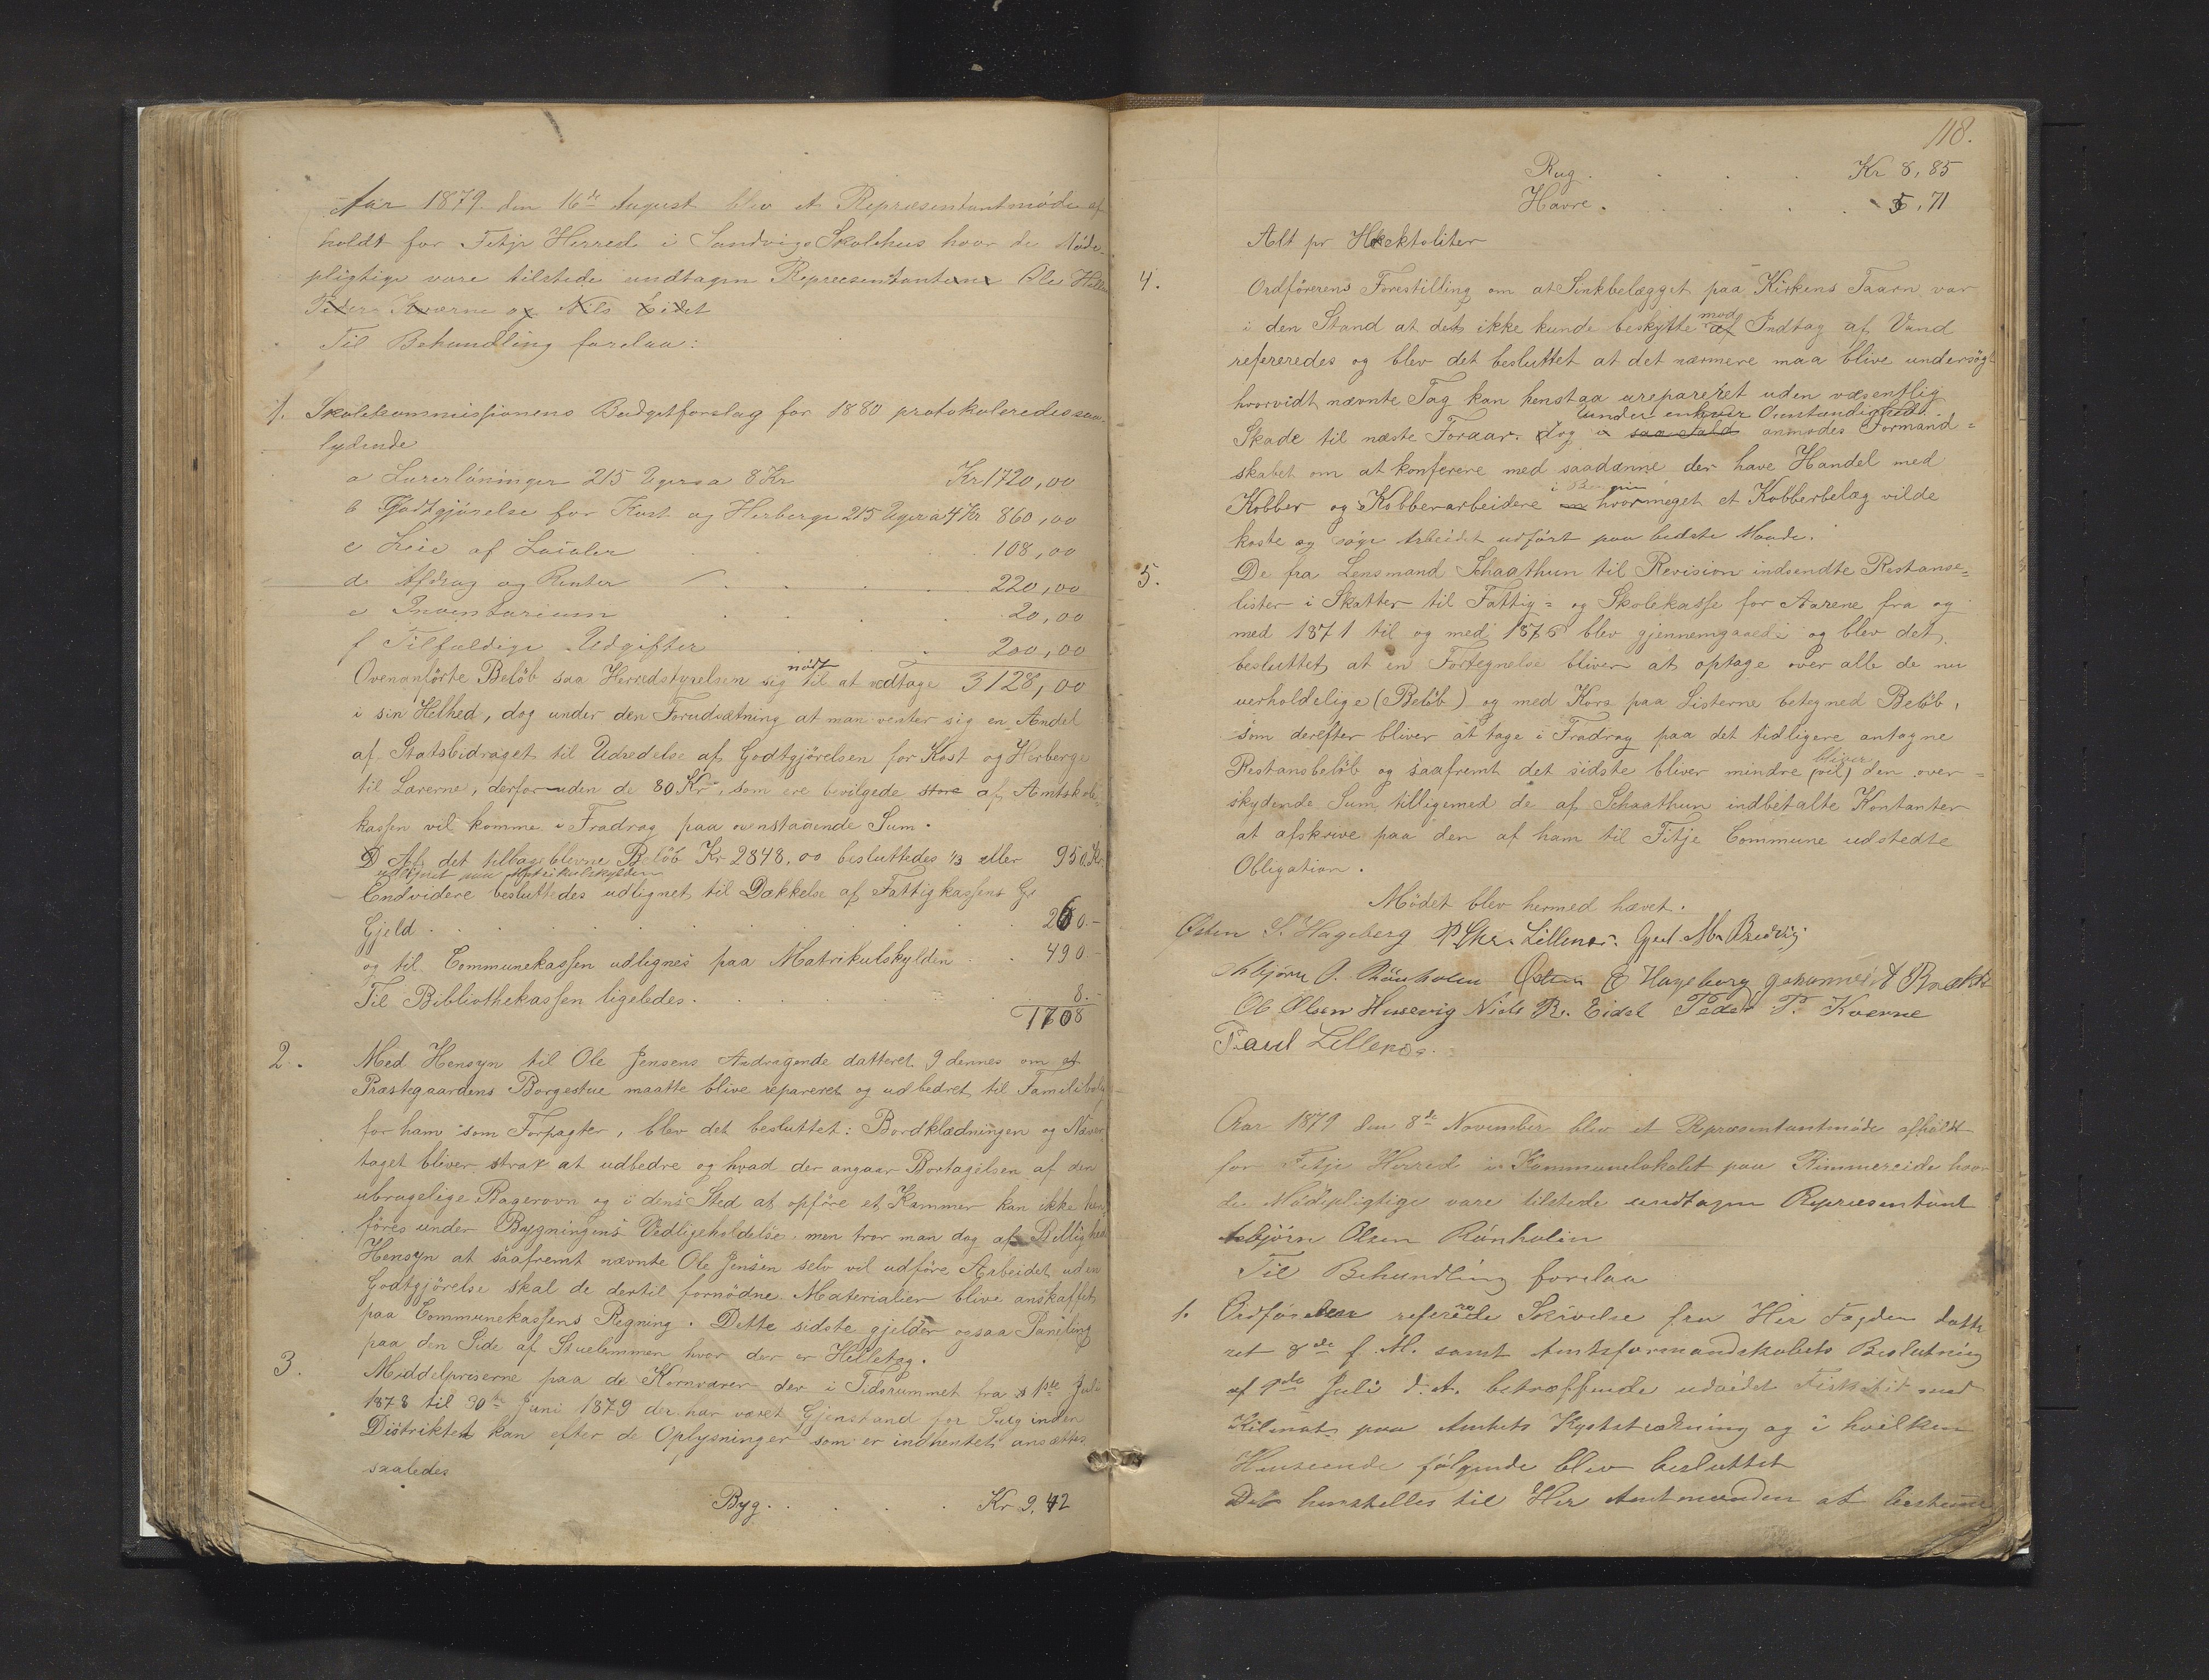 Aar 1879 den 16de August blev et Repræsentantmöde af
holdt for Fitje Herred i Sandvigs Skolehus hvor de Möde-
pligtige vare tilstede undtagen Repræsentanterne Ole
Peder Kværne og Nils Eidet
Til Behandling forelaa:
1. Skolekommissjonens Budgetforslag for 1880 protokoleredes saa-
lydende
a Lærerlönninger 215 Uger a 8 Kr Kr 1720,00
b Godtgjörelse for Kost og Herberge 215 Uger a 4 Kr 860,00
c Leie af Lokaler 108,00
d Afdrag og Renter 220,00
e Inventarium 20,00
f Tilfældige Udgifter 200,00
Ovenanförte Belöb saa Herredstyrelsen sig nödt til at vedtage 3128,00
i sin Helhed, dog under den Forudsætning at man venter sig en Andel
af Statsbidraget til Udredelse af Godtgjörelsen for Kost og Herberge
til Lærerne, derforuden de 80 Kr. som ere bevilgede store af Amtskole-
kassen vil komme i Fradrag paa ovenstaaende Sum.
Af det tilbageblevne Belöb Kr 2848,00 besluttedes 1/3 eller 950 Kr
udlignet paa Matrikulskylden
Endvidere besluttedes udlignet til Dækkelse af Fattigkassens Gj
Gjeld 260.-
og til Communekassen udlignes paa Matrikulskylden 490.-
Til Bibliothekassen ligeledes. 8.-
1708
2. Med Hensyn til Ole Jensens Andragende datteret 9 dennes om at
Præstegaardens Borgestue maatte blive repareret og udbedret til Familiebolig
for ham som Forpagter, blev det besluttet: Bordklædningen og Næver
taget bliver strax at udbedre og hvad der angaar Bortagelsen af den
ubrugelige Bagerovn og i dens Sted at opföre et Kammer kan ikke hen
föres under Bygningens Vedligeholdelse, men tror man dog af Billigheds
Hensyn at saafremt nævnte Ole Jensen selv vil udföre Arbeidet uden
Godtgjörelse skal de dertil fornödne Materialier blive anskaffet
paa Communekassens Regning. Dette sidste gjelder ogsaa Paneling
paa den Side af Stuelemmen hvor der er Helletag.
3. Middelpriserne paa de Kornvarer der i Tidsrummet fra 1ste Juli
1878 til 30te Juni 1879 der har været Gjenstand for Salg inden
Distriktet kan efter de Oplysninger som er indhentet ansættes
saaledes
Byg. Kr 9,42
118.
Rug. Kr 8,85
Havre. 5,71
Alt pr Hektoliter
4. Ordförerens Forestilling om at Sinkbelægget paa Kirkens Taarn var
i den Stand at det ikke kunde beskytte mod af Indtag af Vand
refereredes og blev det besluttet at det nærmere maa blive undersögt
hvorvidt nævnte Tag kan henstaa urepareret uden væsentlig
under enhver Omstændighed
Skade til næste Foraar. dog i saa Fald anmodes Formand=
skabet om at konferere med saadanne der have Handel med
i Bergen
Kobber og Kobberarbeidere om hvormeget et Kobberbelæg vilde
koste og söge Arbeidet udfört paa bedste Maade.
5. De fra Lensmand Schaathun til Revision indsendte Restanse=
lister i Skatter til Fattig= og Skolekasse for Aarene fra og
med 1871 til og med 1876 blev gjennemgaaede og blev det
besluttet at en Fortegnelse bliver at optage over alle de nu
uerholdelige (Belöb) og med Kors paa Listerne betegned Belöb,
som derefter bliver at tage i Fradrag paa det tidligere antagne
bliver
Restansbelöb og saafremt det sidste bliver mindre (vil) den over=
skydende Sum tilligemed de af Schaathun indbetalte Kontanter
at afskrive paa den af ham til Fitje Commune udstedte
Obligation.
Mödet blev hermed hævet.
Östen S. Hageberg P Chr. Lillenæs. M.
Asbjörn O. Rönholm Östen E Hageberg Johannes
Ol Olsen Hussevig Niels R. Eidet Peder P. Kverne
Paul Lillenæs.
Aar 1879 den 8de November blev et Repræsentantmöde afholdt
for Fitje Herred i Kommunelokalet paa Rimmereide hvor
de Mödepligtige vare tilstede undtagen Repræsentant
Asbjörn Olsen Rönholm
Til Behandling forelaa
1. Ordföreren refererede Skrivelse fra Her Fogden datte
ret 8de f. M. samt Amtsformandskabets Beslutning
af 9de Juli d. A. betræffende udvidet Fisketid med
Kilenot paa Amtets Kyststrækning og i hvilken
Henseende fölgende blev besluttet
Det henstilles til Her Amtmanden at bestemme